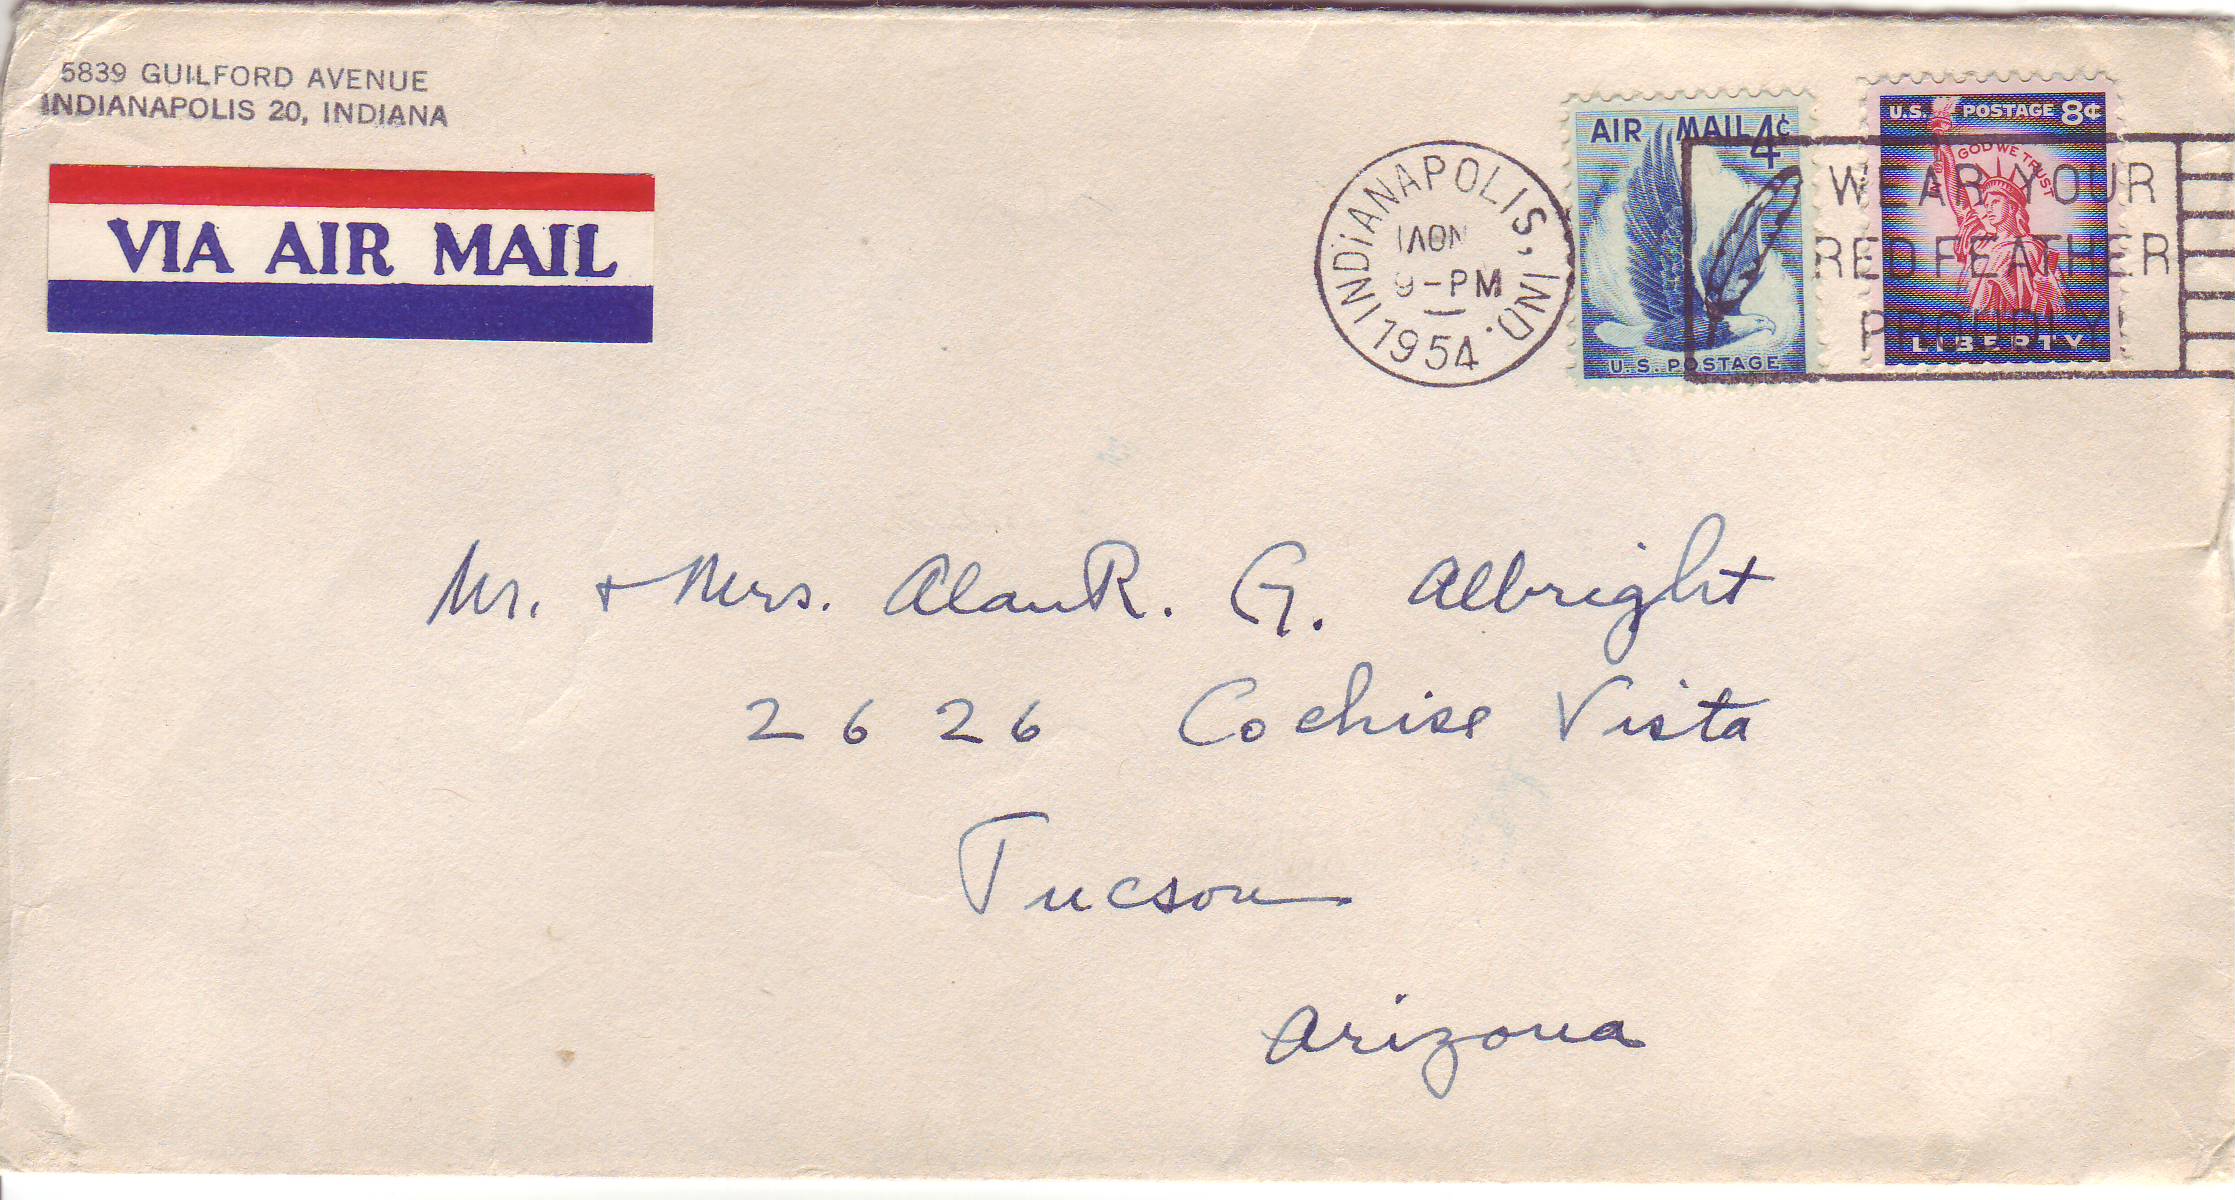 5839 GUILFORD AVENUE
INDIANAPOLIS 20, INDIANA
VIA AIR MAIL
INDIANAPOLIS, IND.
9-PM
1954
AIR MAIL 4¢
U.S. POSTAGE
U.S. POSTAGE 8¢
IN GOD WE TRUST
LIBERTY
WEAR YOUR
RED FEATHER
PROUDLY
Mr. + Mrs. Alan R. G. Albright
2626 Cochise Vista
Tucson
Arizona